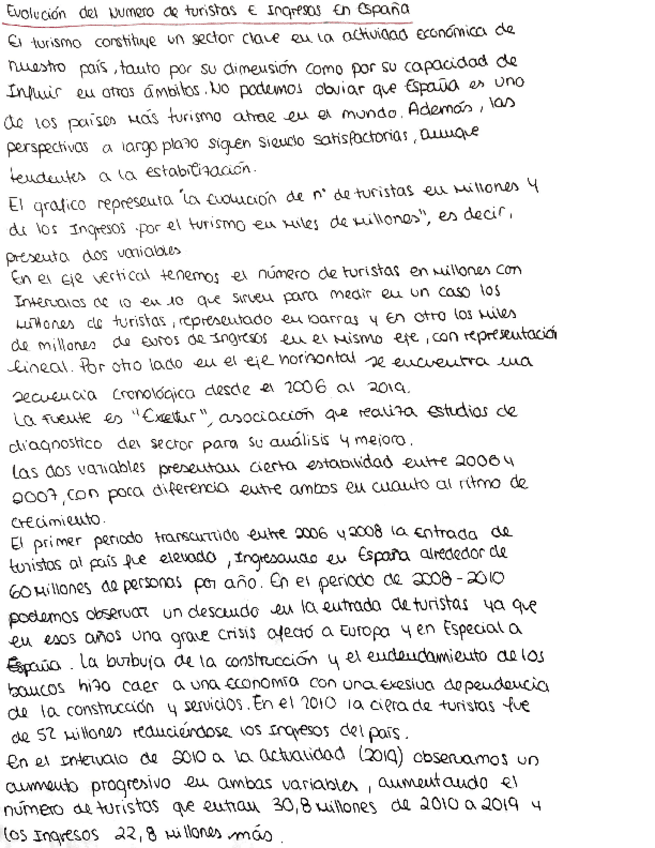 Evolución del Numero de turistas E Ingresos En España
El turismo constituye un sector clave en la actividad económica de
nuestro país, tanto por su dimensión como por su capacidad de
Influir en otros ámbitos. No podemos obviar que España es uno
de los países más turismo atrae en el mundo. Además, las
perspectivas a largo plazo siguen siendo satisfactorias, aunque
tendentes a la estabilización.
El grafico representa "la evolución de nº de turistas en millones y
de los Ingresos por el turismo en miles de millones", es decir,
presenta dos variables
En el eje vertical tenemos el número de turistas en millones con
Intervalos de 10 en 10 que sirven para medir en un caso los
millones de turistas, representado en barras y en otro los miles
de millones de euros de Ingresos en el mismo eje, con representación
lineal. Por otro lado en el eje horizontal se encuentra una
secuencia cronológica desde el 2006 al 2019.
La fuente es "Exceltur", asociación que realiza estudios de
diagnostico del sector para su análisis y mejora.
Las dos variables presentan cierta estabilidad entre 2006 y
2007, con poca diferencia entre ambos en cuanto al ritmo de
crecimiento.
El primer periodo transcurrido entre 2006 y 2008 la entrada de
turistas al país fue elevado, Ingresando en España alrededor de
60 millones de personas por año. En el periodo de 2008-2010
podemos observar un descenso en la entrada de turistas ya que
en esos años una grave crisis afectó a Europa y en Especial a
España. La burbuja de la construcción y el endeudamiento de los
bancos hizo caer a una economía con una exesiva dependencia
de la construcción y servicios. En el 2010 la cifra de turistas fue
de 52 millones reduciéndose los Ingresos del país.
En el Intervalo de 2010 a la actualidad (2019) observamos un
aumento progresivo en ambas variables, aumentando el
número de turistas que entran 30,8 millones de 2010 a 2019 y
los Ingresos 22,8 millones más.